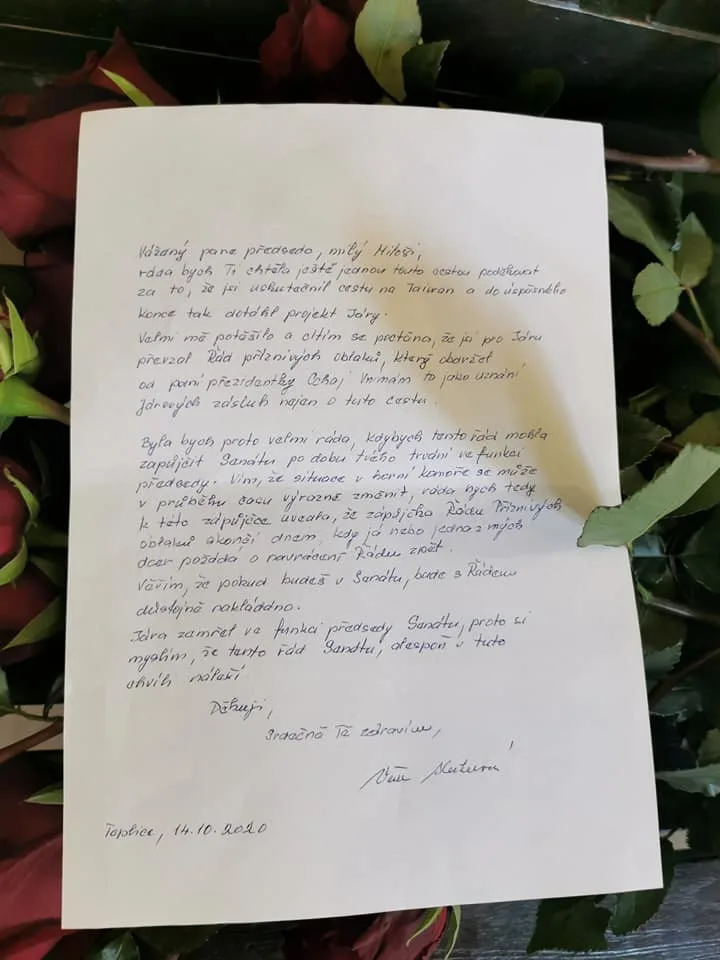 Vážený pane předsedo, milý Miloši,
ráda bych Ti chtěla ještě jednou touto cestou poděkovat
za to, že jsi uskutečnil cestu na Taiwan a do úspěšného
konce tak dotáhl projekt Járy.
Velmi mě potěšilo a cítím se poctěna, že jsi pro Járu
převzal Řád příznivých oblaků, který obdržel
od paní prezidentky Cchaj. Vnímám to jako uznání
Járových zásluh nejen o tuto cestu.
Byla bych proto velmi ráda, kdybych tento řád mohla
zapůjčit Senátu po dobu tvého trvání ve funkci
předsedy. Vím, že situace v horní komoře se může
v průběhu času výrazně změnit, ráda bych tedy
k této zápůjčce uvedla, že zápůjčka Řádu Příznivých
oblaků skončí dnem, kdy já nebo jedna z mých
dcer požádá o navrácení Řádu zpět.
Věřím, že pokud budeš v Senátu, bude s Řádem
důstojně nakládáno.
Jára zemřel ve funkci předsedy Senátu, proto si
myslím, že tento řád Senátu, alespoň v tuto
chvíli náleží.
Děkuji,
Srdečně Tě zdravím,
Teplice, 14.10.2020